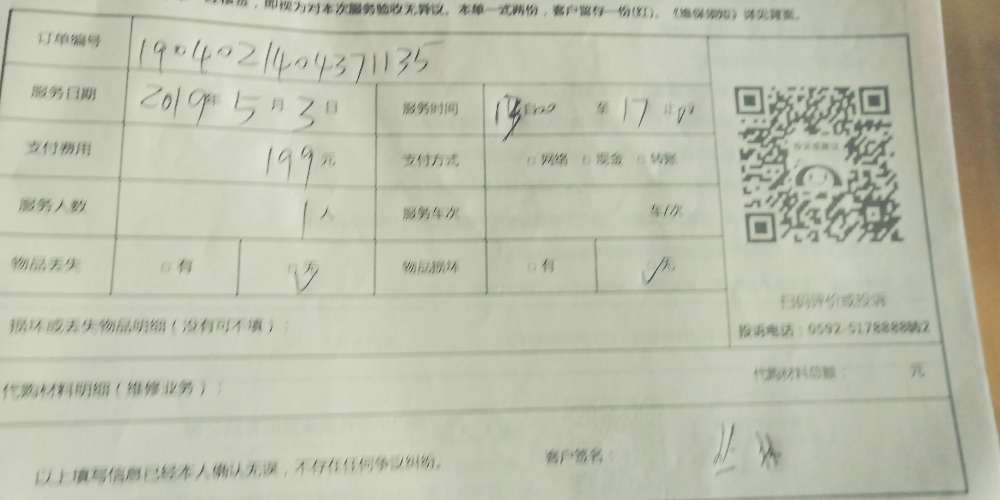 即视为对本次服务验收无异议。本单一式两份，客户留存一份(红)。
订单编号 1904021404371135
服务日期 2019年5月3日 服务时间 至 17
支付费用 199元 支付方式 □网络 □现金 □转账
服务人数 1人 服务车次 车/次
物品丢失 □有 □无 物品损坏 □有 □无
扫码评价或投诉
损坏或丢失物品明细（没有可不填）： 投诉电话：0592-5178888转2
代购材料明细（维修业务）： 代购材料总额： 元
以上填写信息已经本人确认无误，不存在任何争议纠纷。 客户签名：